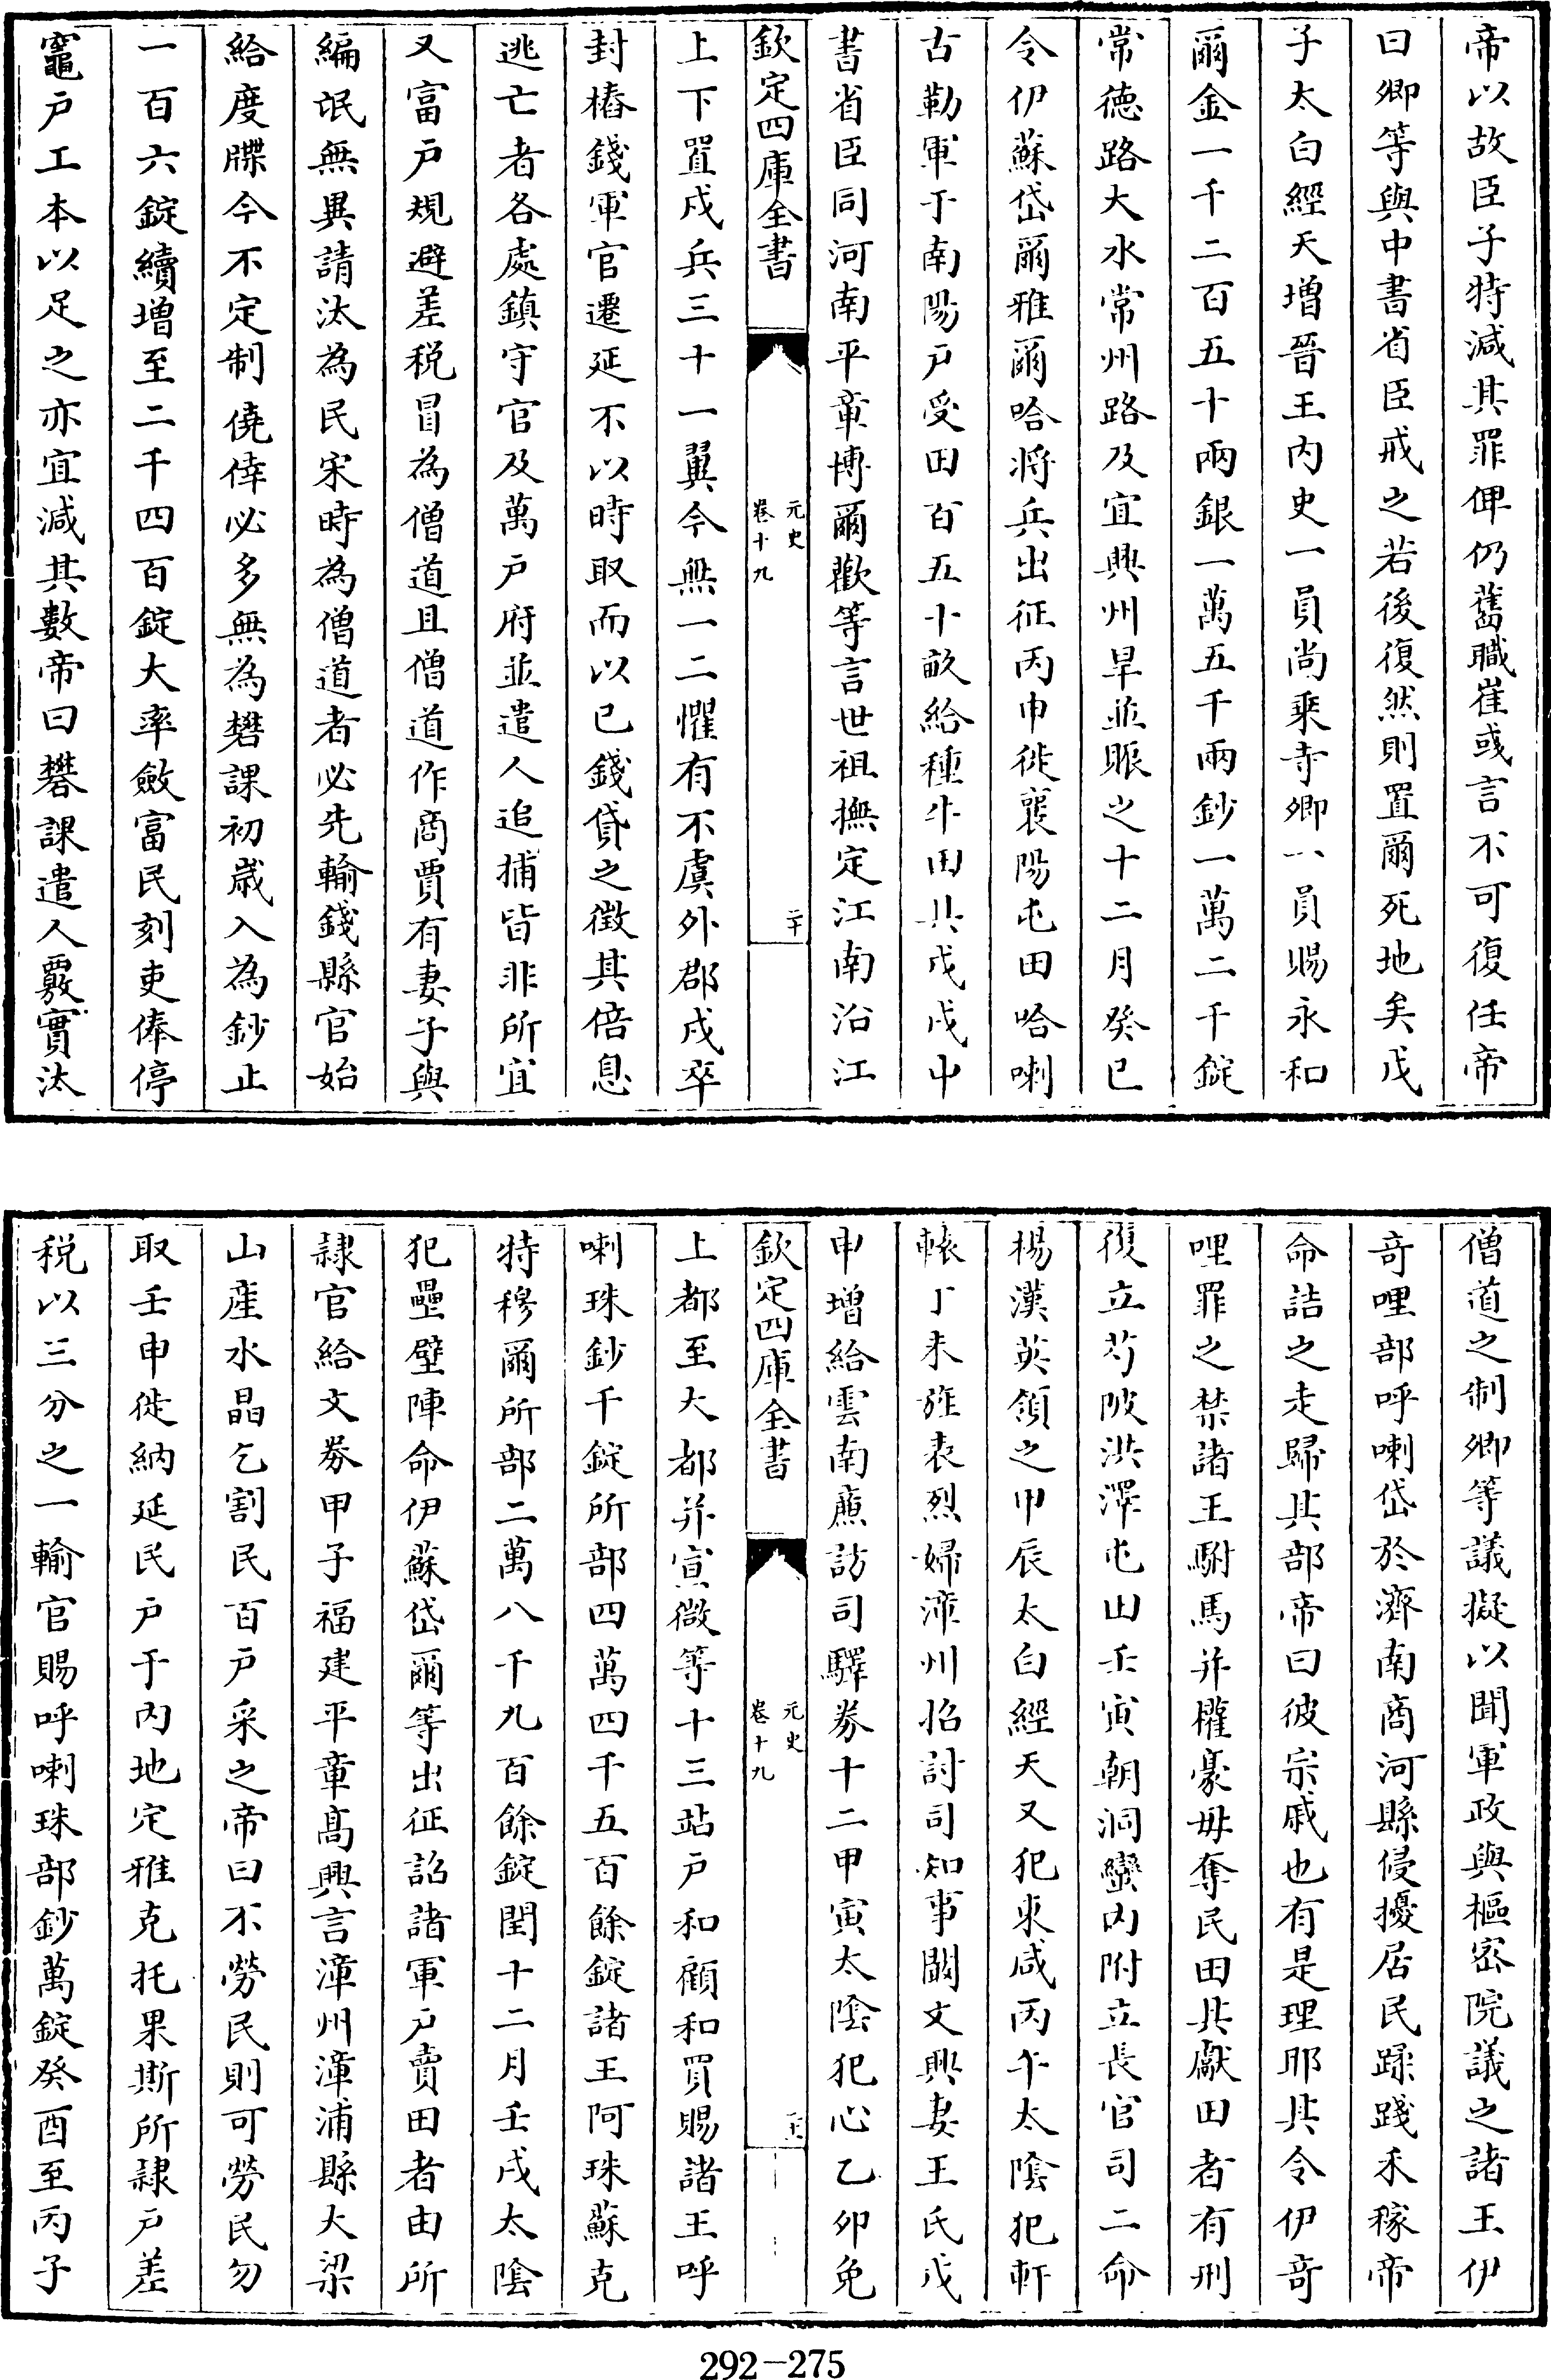 帝以故臣子特減其罪俾仍舊職崔彧言不可復任帝
曰卿等與中書省臣戒之若後復然則置爾死地矣戊
子太白經天增晉王内史一員尚乗寺卿一員賜永和
爾金一千二百五十兩銀一萬五千兩鈔一萬二千錠
常德路大水常州路及宜興州旱並賑之十二月癸巳
令伊蘇岱爾雅爾哈將兵出征丙申徙襄陽屯田哈喇
古勒軍于南陽户受田百五十畝給種牛田具戊戌中
書省臣同河南平章博爾歡等言世祖撫定江南沿江
欽定四庫全書
元史
卷十九
二十
上下置戍兵三十一翼今無一二懼有不虞外郡戍卒
封樁錢軍官遷延不以時取而以已錢貸之徴其倍息
逃亡者各處鎮守官及萬户府並遣人追捕皆非所宜
又富户規避差税冒為僧道且僧道作商賈有妻子與
編氓無異請汰為民宋時為僧道者必先輸錢縣官始
給度牒今不定制僥倖必多無為礬課初嵗入為鈔止
一百六錠續增至二千四百錠大率斂富民刻吏俸停
竈户工本以足之亦宜減其數帝曰礬課遣人覈實汰
僧道之制卿等議擬以聞軍政與樞密院議之諸王伊
竒哩部呼喇岱於濟南商河縣侵擾居民蹂踐禾稼帝
命詰之走歸其部帝曰彼宗戚也有是理耶其令伊竒
哩罪之禁諸王駙馬并權豪毋奪民田其獻田者有刑
復立芍陂洪澤屯田壬寅朝洞蠻内附立長官司二命
楊漢英領之甲辰太白經天又犯東咸丙午太隂犯軒
轅丁未旌表烈婦漳州招討司知事闞文興妻王氏戊
申增給雲南亷訪司驛券十二甲寅太隂犯心乙卯免
欽定四庫全書
元史
卷十九
二十一
上都至大都并宣徽等十三站户和顧和買賜諸王呼
喇珠鈔千錠所部四萬四千五百餘錠諸王阿珠蘇克
特穆爾所部二萬八千九百餘錠閏十二月壬戌太隂
犯壘壁陣命伊蘇岱爾等出征詔諸軍户賣田者由所
隷官給文券甲子福建平章髙興言漳州漳浦縣大梁
山産水晶乞割民百户采之帝曰不勞民則可勞民勿
取壬申徙納延民户于内地定雅克托果斯所隷户差
税以三分之一輸官賜呼喇珠部鈔萬錠癸酉至丙子
292-275